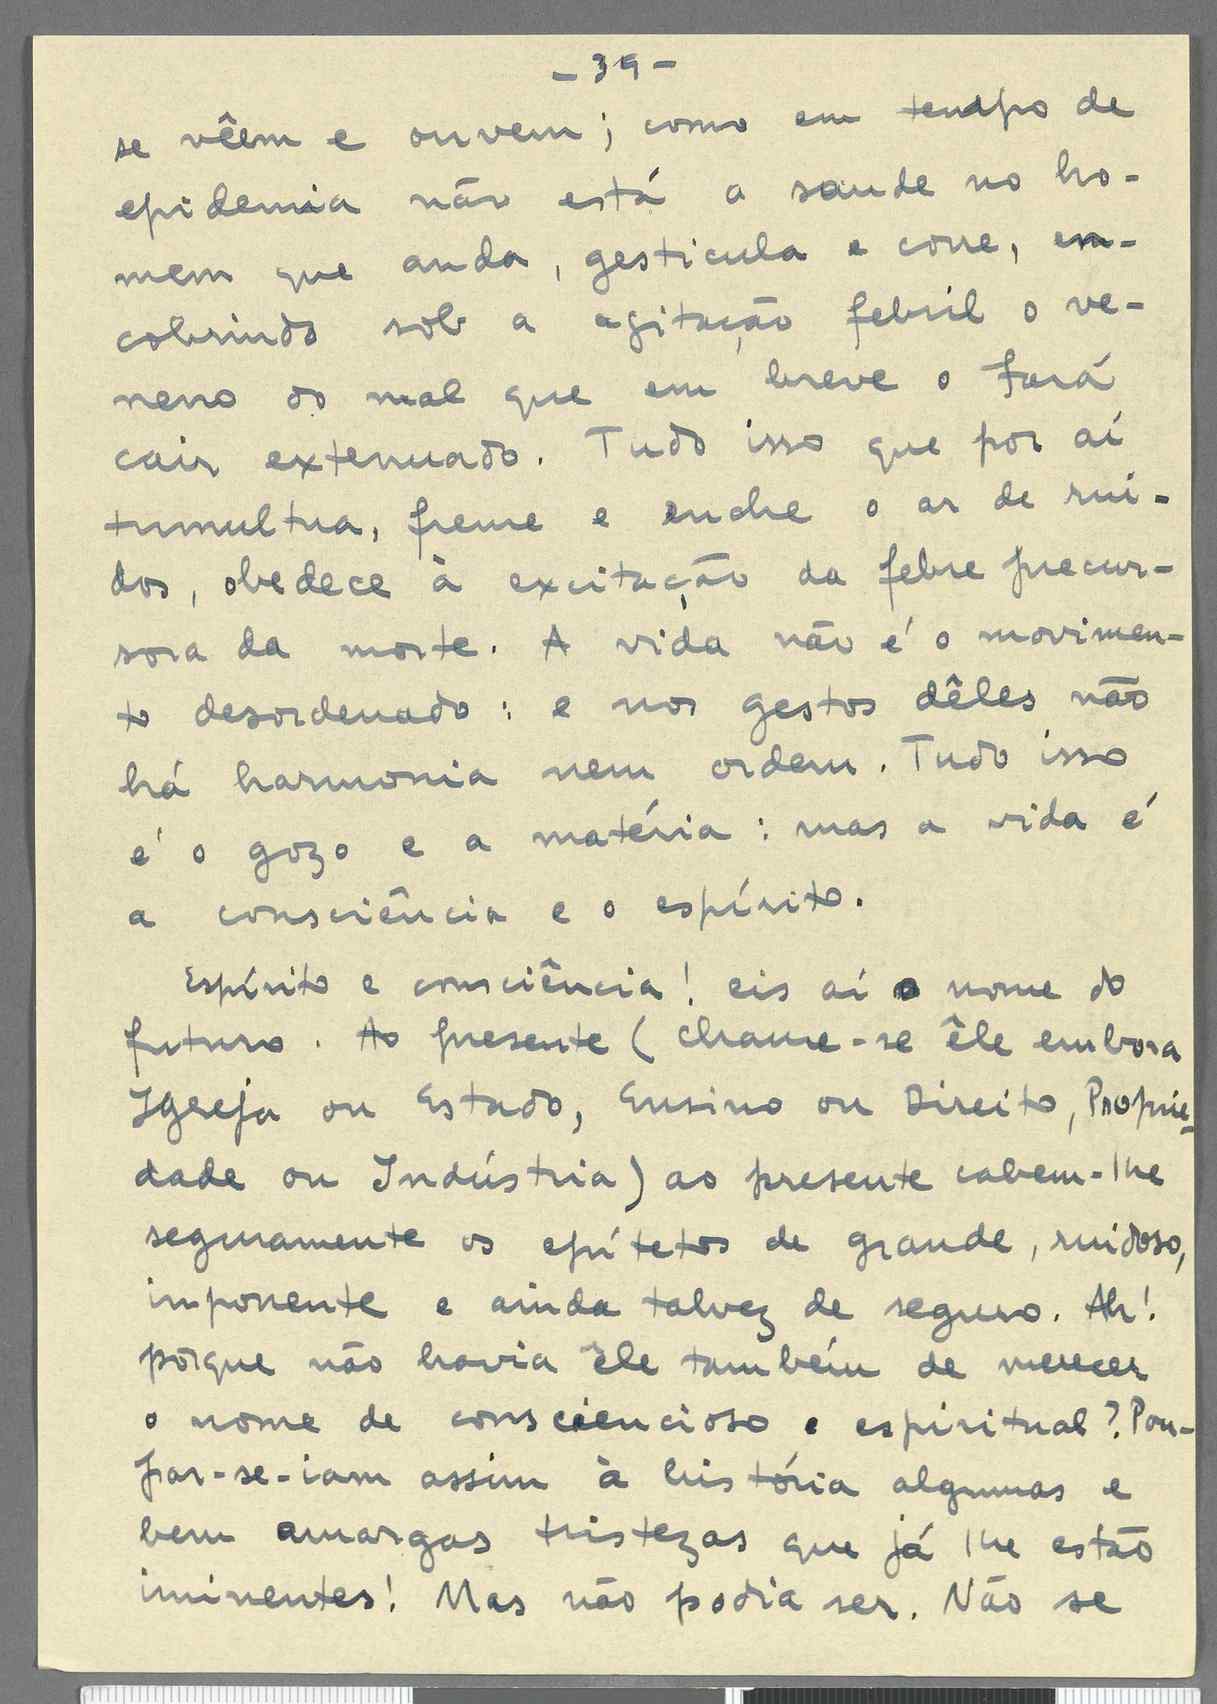 - 39 -
se vêem e ouvem; como em tempo de
epidemia não está a saude no ho-
mem que anda, gesticula e corre, en-
cobrindo sob a agitação febril o ve-
neno do mal que em breve o fará
cair extenuado. Tudo isso que por aí
tumultua, freme e enche o ar de ruí-
dos, obedece à excitação da febre precur-
sora da morte. A vida não é o movimen-
to desordenado: e nos gestos dêles não
há harmonia nem ordem. Tudo isso
é o gozo e a matéria: mas a vida é
a consciência e o espírito.
Espírito e consciência! eis aí o nome do
futuro. Ao presente (chame-se êle embora
Igreja ou Estado, Ensino ou Direito, Proprie-
dade ou Indústria) ao presente cabem-lhe
seguramente os epítetos de grande, ruidoso,
imponente e ainda talvez de seguro. Ah!
porque não havia êle também de merecer
o nome de consciencioso e espiritual? Pou-
par-se-iam assim à história algumas e
bem amargas tristezas que já lhe estão
iminentes! Mas não podia ser. Não se